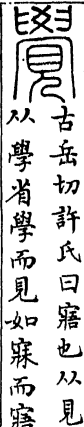 覺
古岳切許氏曰寤也从見
从學省學而見如寐而寤